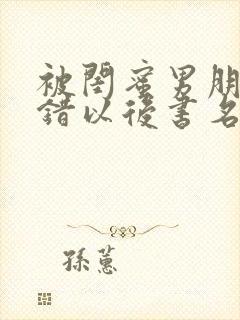 被閨蜜男朋
錯以後書名
孫蕙